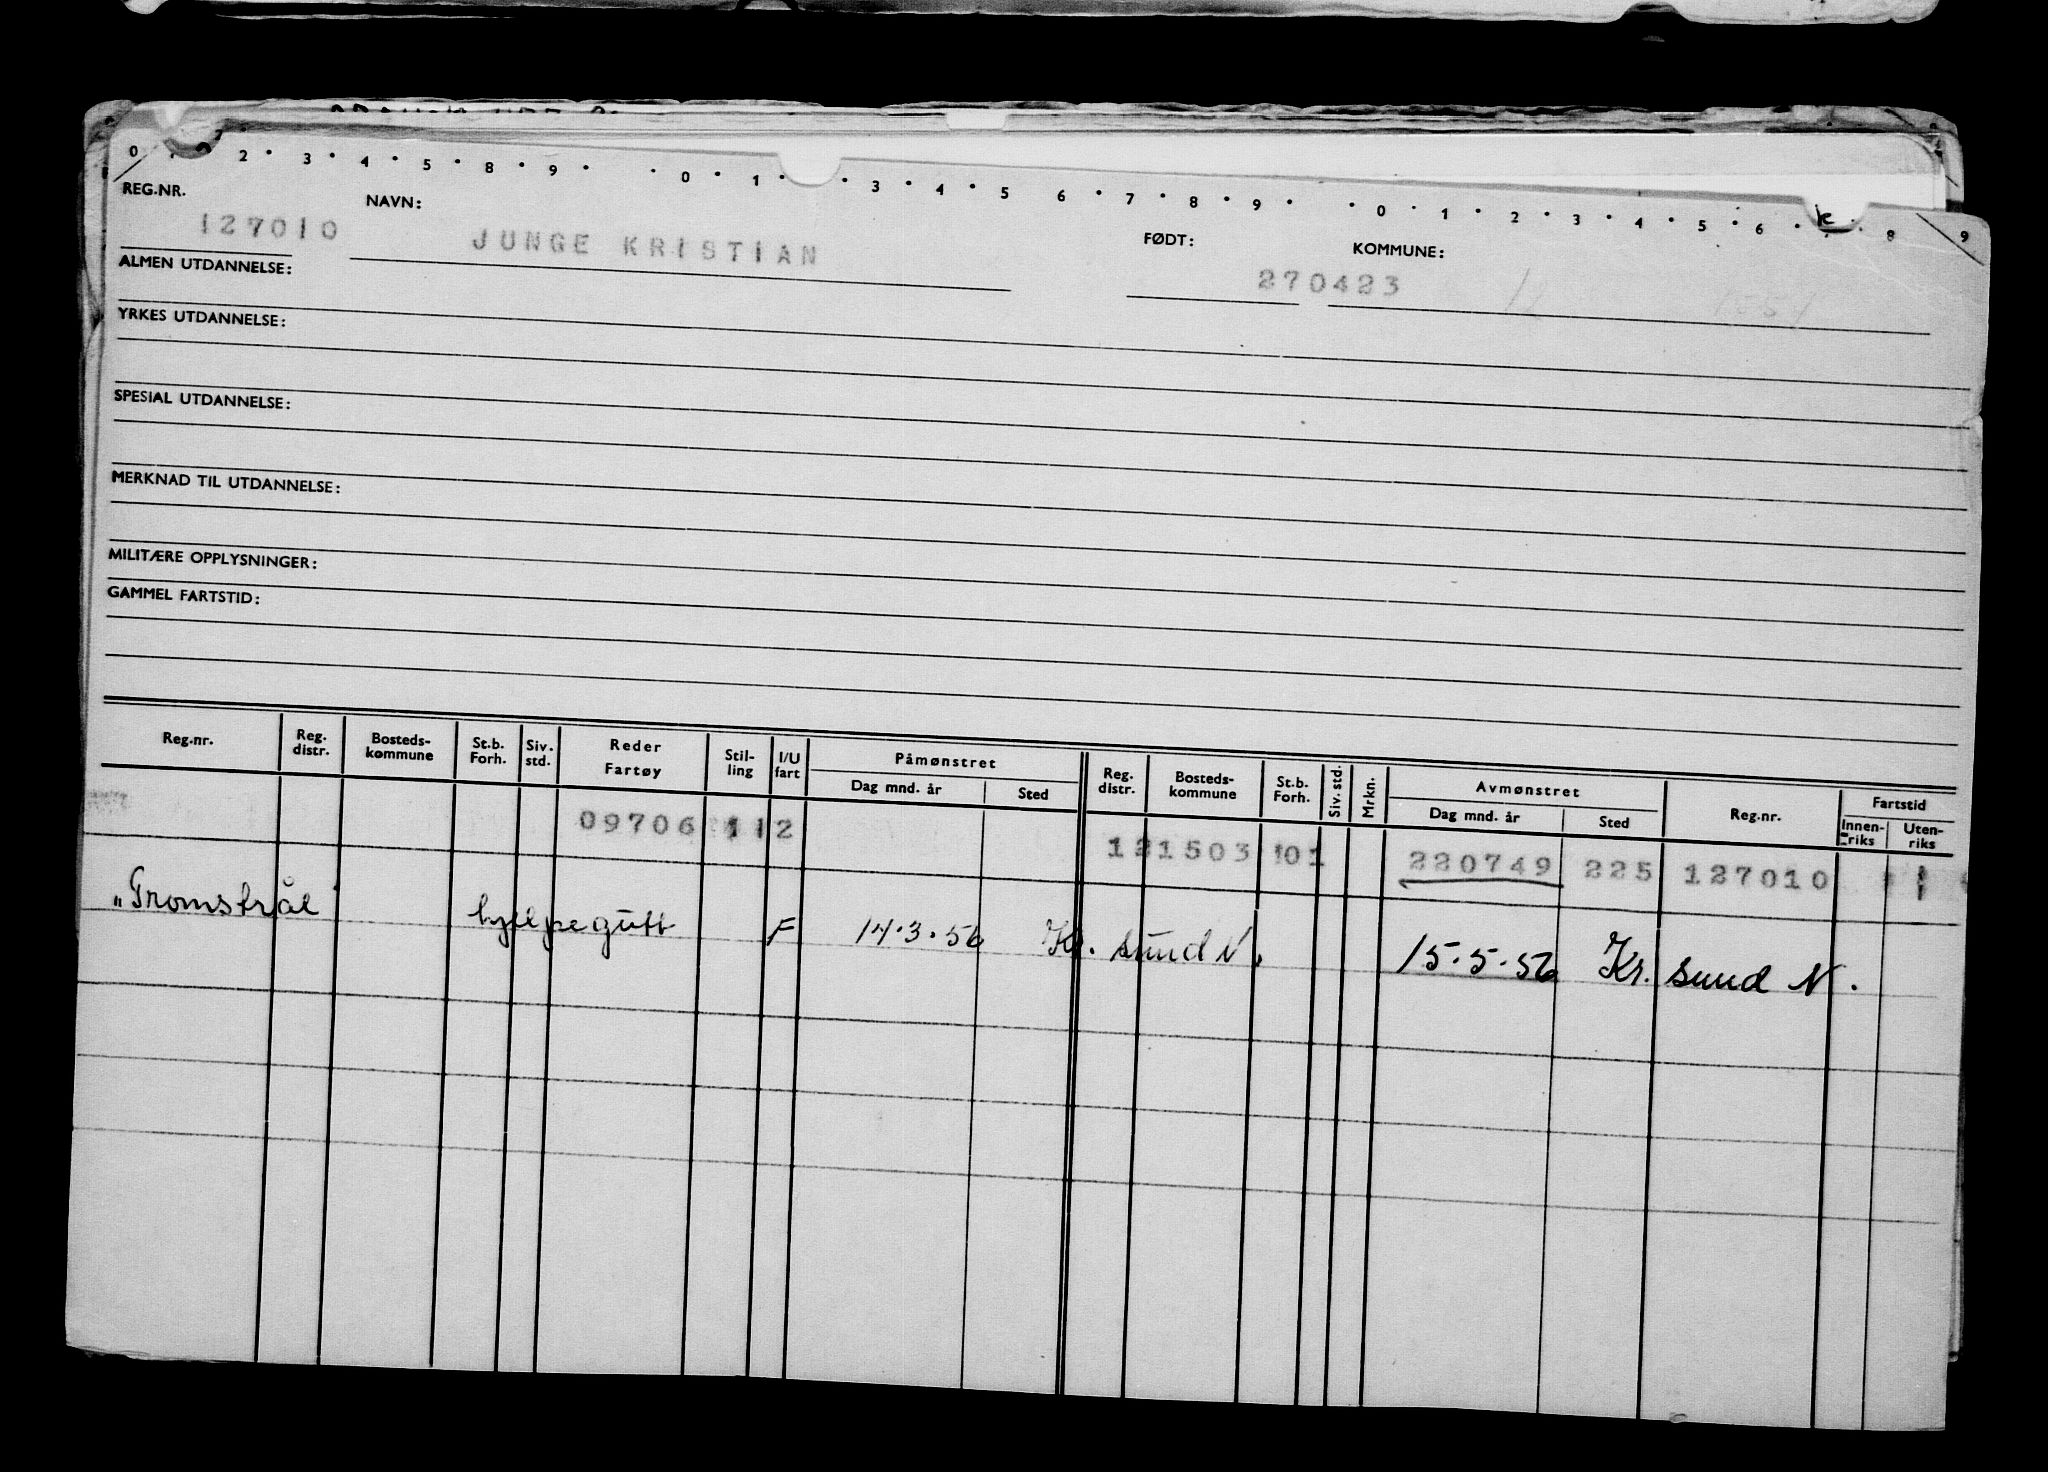 0 1 2 3 4 5 8 9 0 1 3 4 5 6 7 8 9 0 1 2 3 4 5 6 8 9
REG.NR. NAVN: FØDT: KOMMUNE:
127010 JUNGE KRISTIAN 270423
ALMEN UTDANNELSE:
YRKES UTDANNELSE:
SPESIAL UTDANNELSE:
MERKNAD TIL UTDANNELSE:
MILITÆRE OPPLYSNINGER:
GAMMEL FARTSTID:
Reg.nr. Reg. distr. Bosteds-kommune St.b. Forh. Siv. std. Reder Fartøy Stil-ling I/U fart Påmønstret Dag mnd. år Sted Reg. distr. Bosteds-kommune St.b. Forh. Siv. std. Mrkn. Avmønstret Dag mnd. år Sted Reg.nr. Fartstid Innen-riks Uten-riks
09706 112 121503 101 220749 225 127010
"Tromstrål" hjelpegutt F 14.3.56 Kr. sund N. 15.5.56 Kr. sund N.